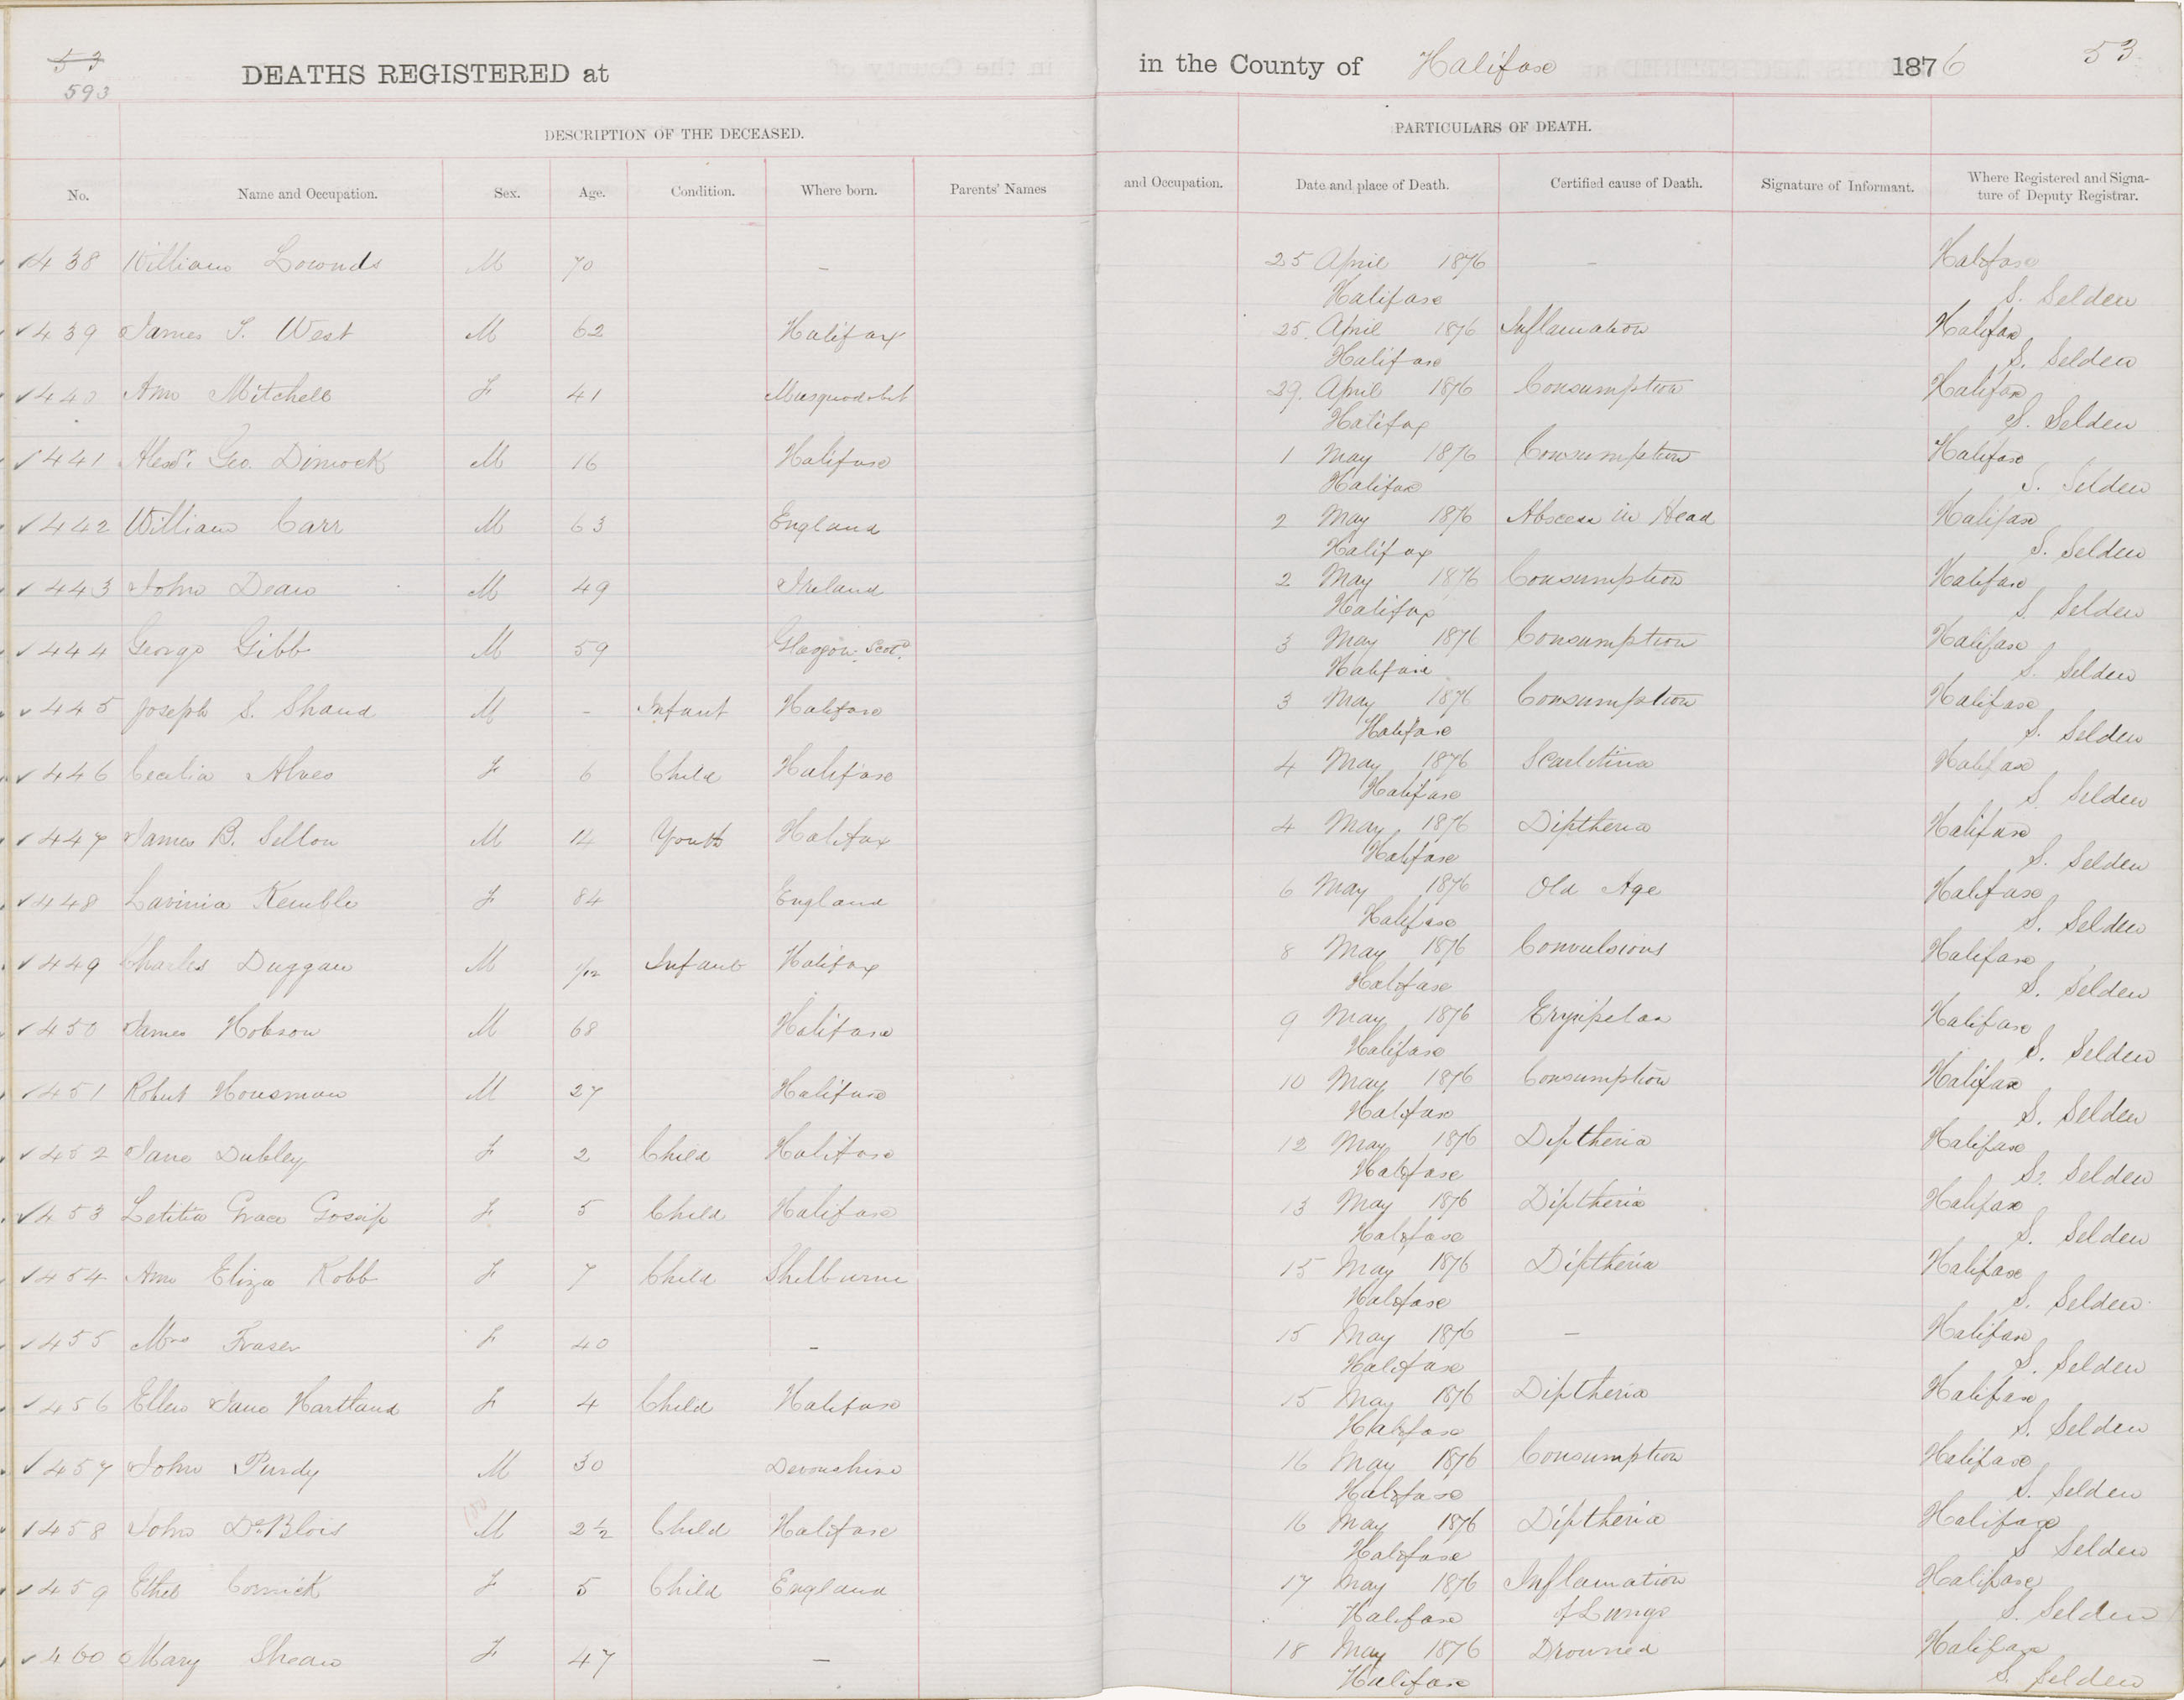 53
593
DEATHS REGISTERED at in the County of Halifax 1876 53
DESCRIPTION OF THE DECEASED. PARTICULARS OF DEATH.
No. Name and Occupation. Sex. Age. Condition. Where born. Parents' Names and Occupation. Date and place of Death. Certified cause of Death. Signature of Informant. Where Registered and Signa-
ture of Deputy Registrar.
438 William Lownds M 70 – 25 April 1876 – Halifax
Halifax S. Selden
439 James T. West M 62 Halifax 25 April 1876 Inflamation Halifax
Halifax S. Selden
440 Ann Mitchell F 41 Musquodobit 29 April 1876 Consumption Halifax
Halifax S. Selden
441 Alexr. Geo. Dimock M 16 Halifax 1 May 1876 Consumption Halifax
Halifax S. Selden
442 William Carr M 63 England 2 May 1876 Abscess in Head Halifax
Halifax S. Selden
443 John Dean M 49 Ireland 2 May 1876 Consumption Halifax
Halifax S. Selden
444 George Gibb M 59 Glasgow Scotd. 3 May 1876 Consumption Halifax
Halifax S. Selden
445 Joseph S. Shand M – Infant Halifax 3 May 1876 Consumption Halifax
Halifax S. Selden
446 Cecelia F 6 Child Halifax 4 May 1876 Scarlitina Halifax
Halifax S. Selden
447 James B. Sellon M 14 Youth Halifax 4 May 1876 Diptheria Halifax
Halifax S. Selden
448 Lavinia Kemble F 84 England 6 May 1876 Old Age Halifax
Halifax S. Selden
449 Charles Duggan M 1/12 Infant Halifax 8 May 1876 Convulsions Halifax
Halifax S. Selden
450 James Hobson M 68 Halifax 9 May 1876 Erysipelas Halifax
Halifax S. Selden
451 Robert Housman M 27 Halifax 10 May 1876 Consumption Halifax
Halifax S. Selden
452 Jane Dubley F 2 Child Halifax 12 May 1876 Diptheria Halifax
Halifax S. Selden
453 Letitia Grace Gossip F 5 Child Halifax 13 May 1876 Diptheria Halifax
Halifax S. Selden
454 Ann Eliza Robb F 7 Child Shelburne 15 May 1876 Diptheria Halifax
Halifax S. Selden
455 Mrs Fraser F 40 – 15 May 1876 – Halifax
Halifax S. Selden
456 Ellen Jane Hartland F 4 Child Halifax 15 May 1876 Diptheria Halifax
Halifax S. Selden
457 John Purdy M 30 Devonshire 16 May 1876 Consumption Halifax
Halifax S. Selden
458 John DeBlois M 2½ Child Halifax 16 May 1876 Diptheria Halifax
Halifax S Selden
459 Ethel Cornick F 5 Child England 17 May 1876 Inflamation Halifax
Halifax of Lungs S. Selden
460 Mary Shean F 47 – 18 May 1876 Drowned Halifax
Halifax S. Selden